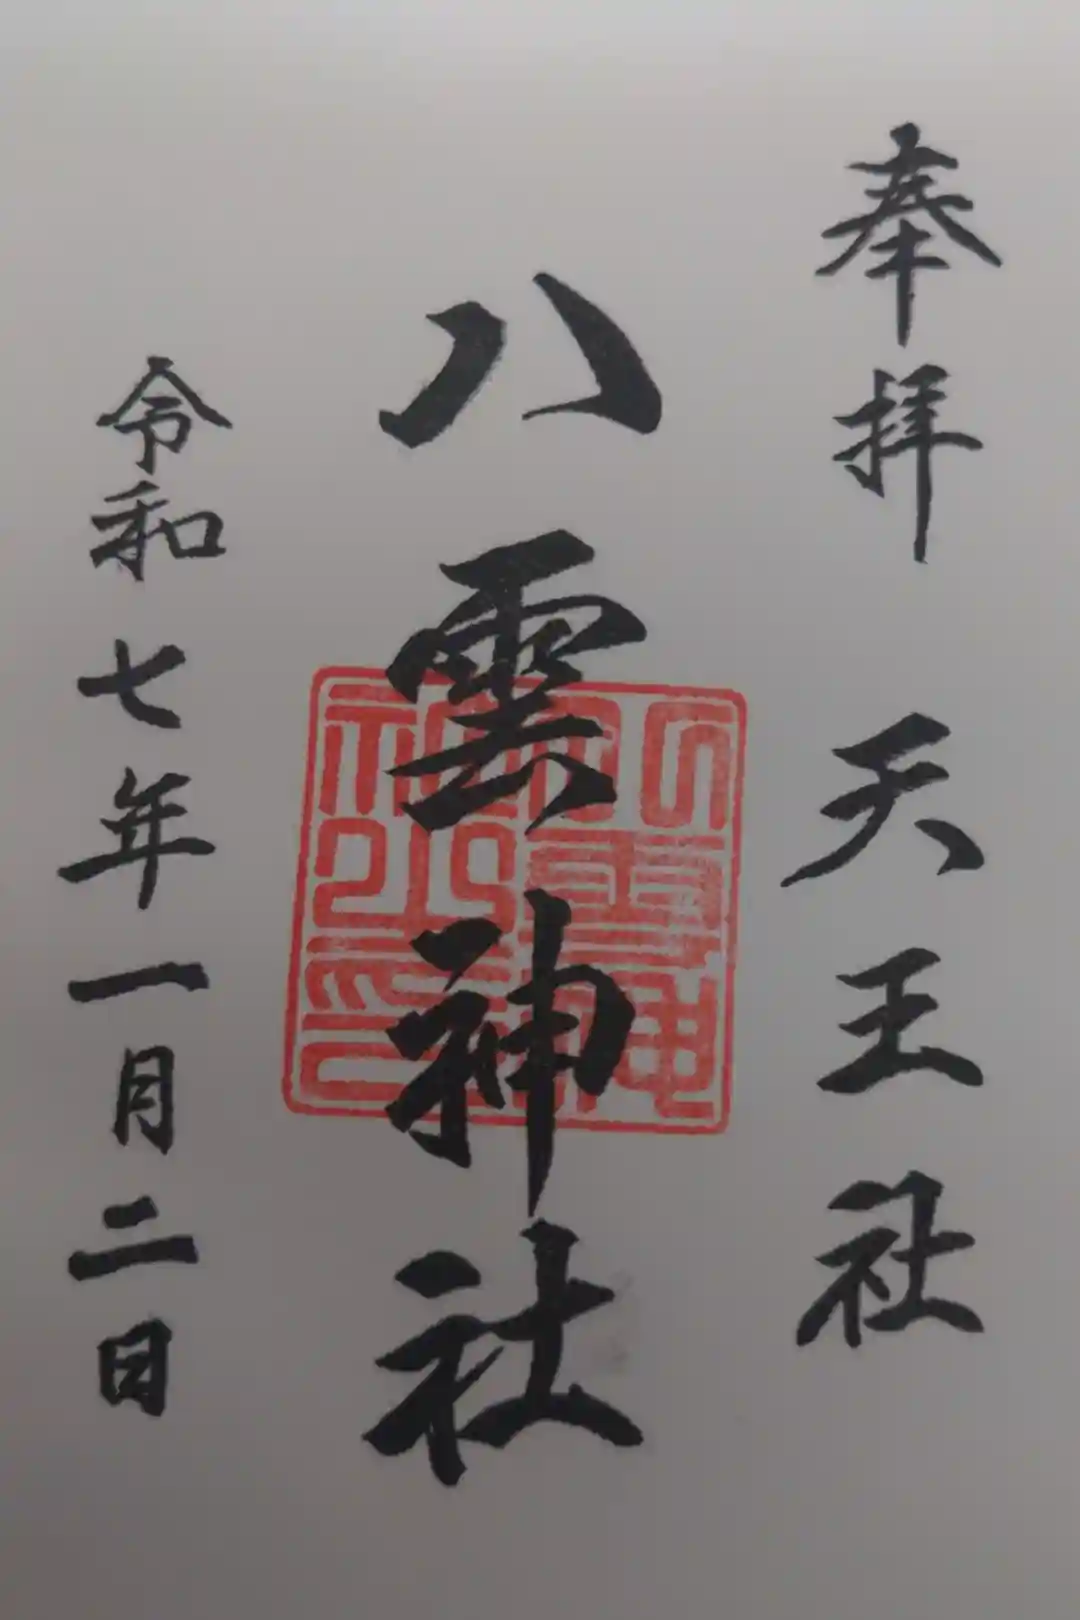 奉拝 天王社
八雲神社
令和七年一月二日